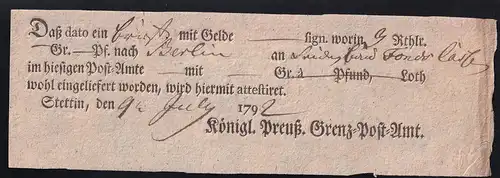 Daß dato ein brief mit Gelde — sign. worin 9 Rthlr.
— Gr. — Pf. nach Berlin an Fonds Casse
im hiesigen Post-Amte — mit — Gr. à Pfund, Loth
wohl eingeliefert worden, wird hiermit attestiret.
Stettin, den 9t July 1792
Königl. Preuß. Grenz-Post-Amt.